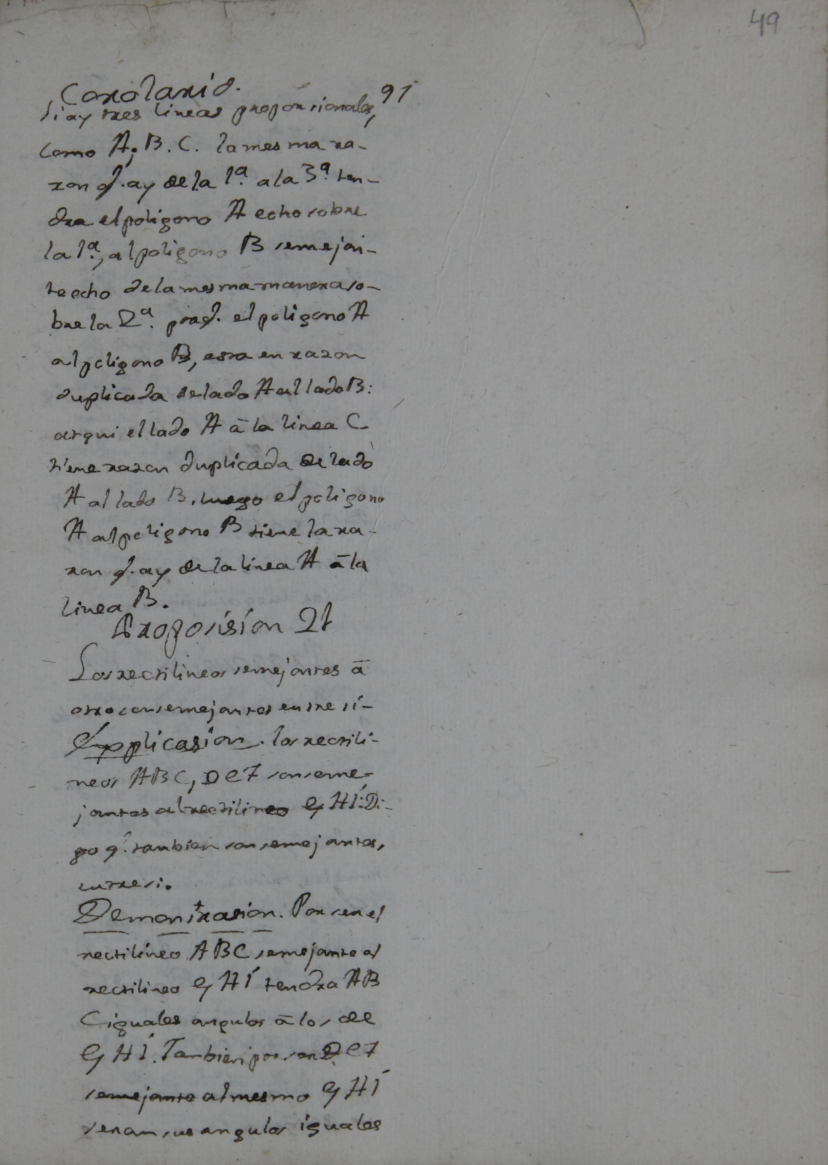 49
Corolario. 91
Si ay tres lineas proporsionales,
como A, B. C. la mesma ra-
zon q. ay de la 1ª. a la 3ª ten-
dra el poligono A echo sobre
la 1ª, al poligono B semejan-
te echo de la mesma manera so-
bre la 2ª. porq. el poligono A
al poligono B, esta en razon
duplicada de lado A al lado B:
atqui el lado A â la linea C
tiene razon duplicada de lado
A al lado B. luego el poligono
A al poligono B tiene la ra-
zon q. ay de la linea A â la
linea B.
Proposision 21
Los rectilineos semejantes â
otro son semejantes entre sí-
Expplicasion. los rectili-
neos ABC, DEF son seme-
jantes al rectilineo GHÍ: Di-
go q. tambien son semejantes,
entre si.
Demonstrasion. Por ser el
rectilineo ABC semejante al
rectilineo GHÍ tendra AB
C iguales angulos â los de
GHÍ. Tambien por ser DEF
semejante al mesmo GHÍ
seran sus angulos iguales